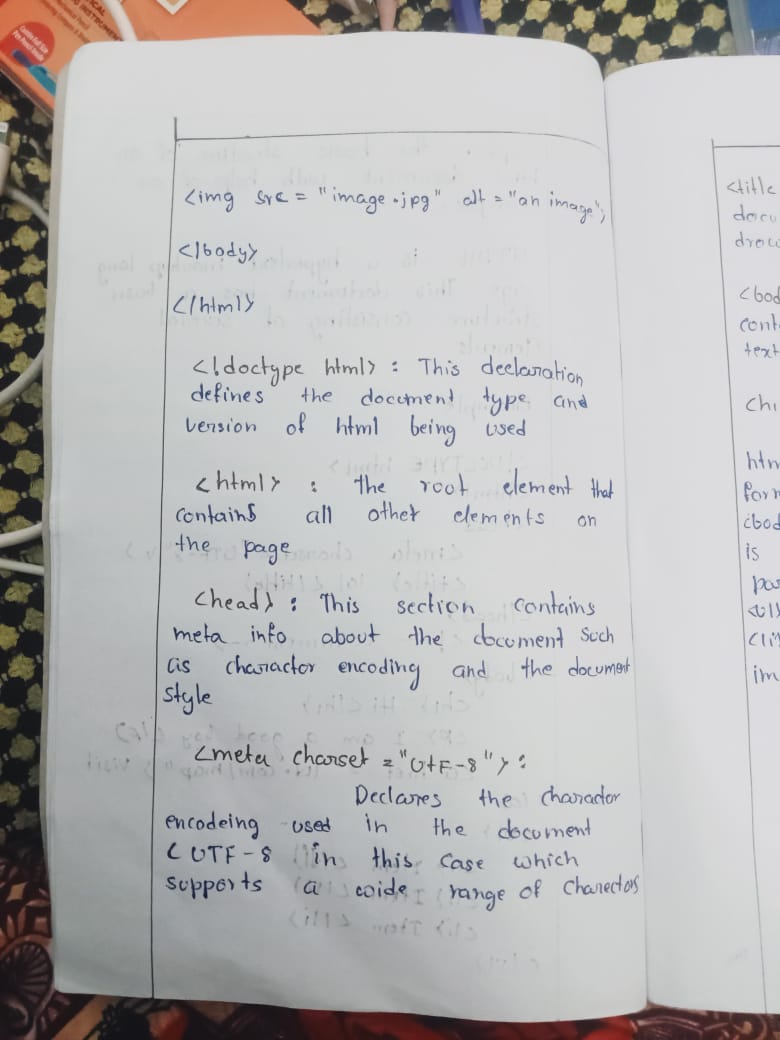 <img src = "image.jpg" alt = "an image",
</body>
</html>
<!doctype html> : This declaration
defines the document type and
version of html being used
<html> : the root element that
contains all other elements on
the page
<head> : This section contains
meta info about the document such
as charactor encoding and the document
style
<meta charset = "UTF-8">:
Declares the charador
encodeing used in the document
< UTF-8 in this case which
supports a wide range of charectors
<title
docu
<bod
cont
text
htm
form
<bod
is
<li
im